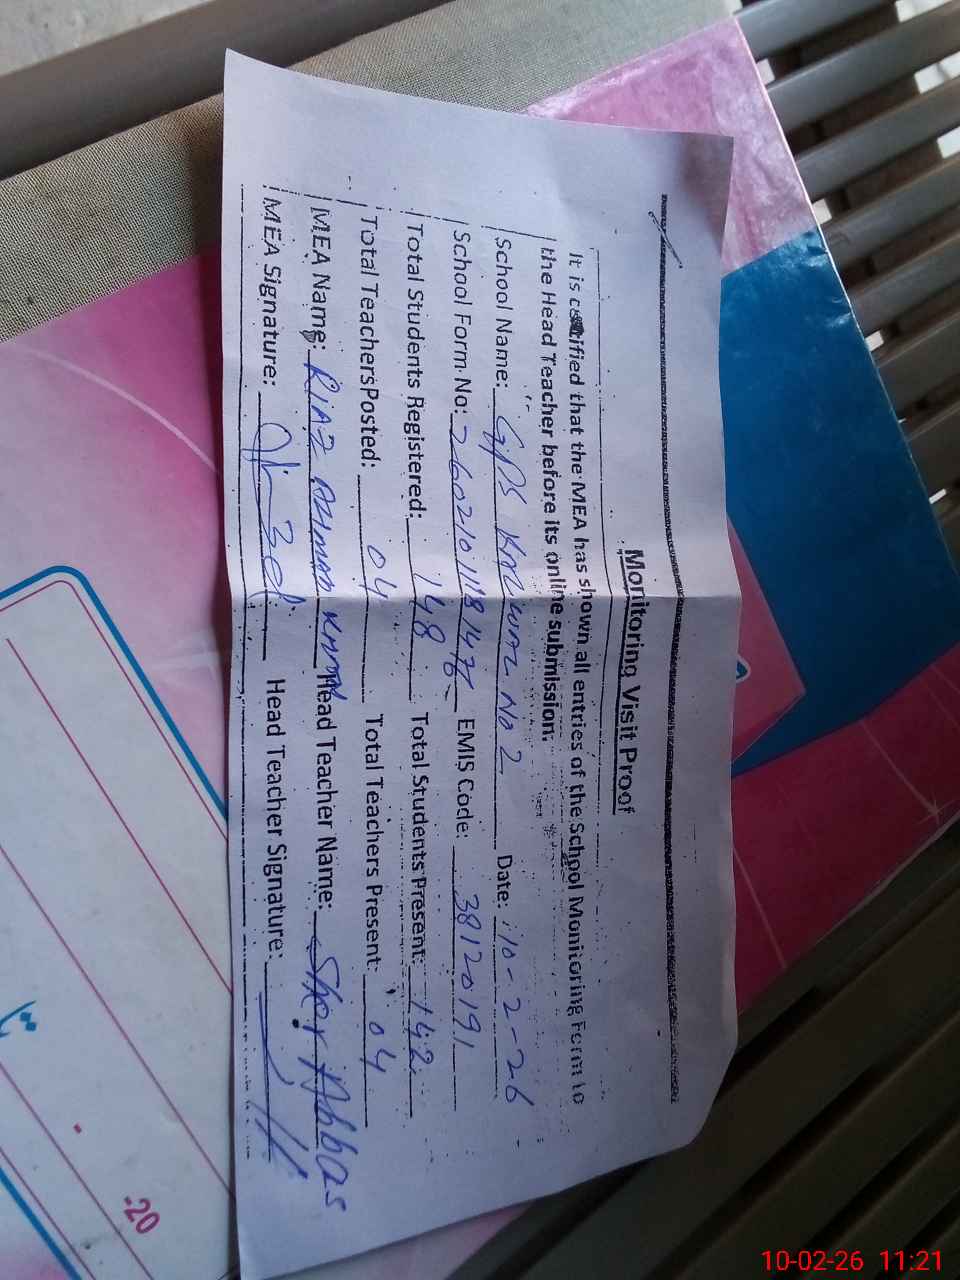 Monitoring Visit Proof
It is certified that the MEA has shown all entries of the School Monitoring Form to
the Head Teacher before its online submission.
School Name: GPS No 2 Date: 10-2-26
School Form No: EMIS Code: 38120191
Total Students Registered: 148 Total Students Present: 142
Total Teachers Posted: 04 Total Teachers Present: 04
MEA Name: RIAZ AHMAD KHAN Head Teacher Name: Sher Abbas
MEA Signature: Head Teacher Signature:
-20
10-02-26 11:21